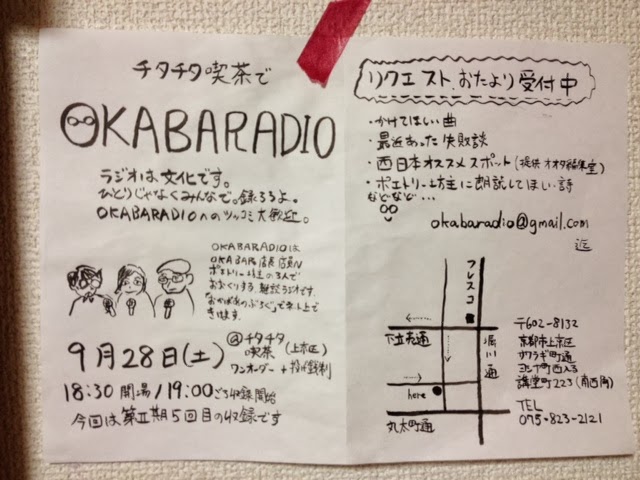 チタチタ喫茶で
OKABARADIO
ラジオは文化です。
ひとりじゃなくみんなで。録ろうよ。
OKABARADIOへのツッコミ大歓迎。
OKABARADIOは
OKABAR店長、店員N
ポエトリー坊主の3人で
おおくりする雑談ラジオです。
ネット上で
きけます。
9月28日(土)
@チタチタ
喫茶 (上京区)
ワンオーダー + 投げ銭制
18:30 開場 / 19:00ごろ収録開始
今回は第五期5回目の収録です
リクエスト、おたより受付中
・かけてほしい曲
・最近あった失敗談
・西日本オススメスポット(提供 オオタ編集室)
・ポエトリー坊主に朗読してほしい詩
などなど…
okabaradio@gmail.com
迄
フレスコ
下立売通
堀川通
here
丸太町通
〒602-8132
京都市上京区
サワラギ町通
ヨシヤ町西入ル
講堂町223(南西角)
TEL
075-823-2121